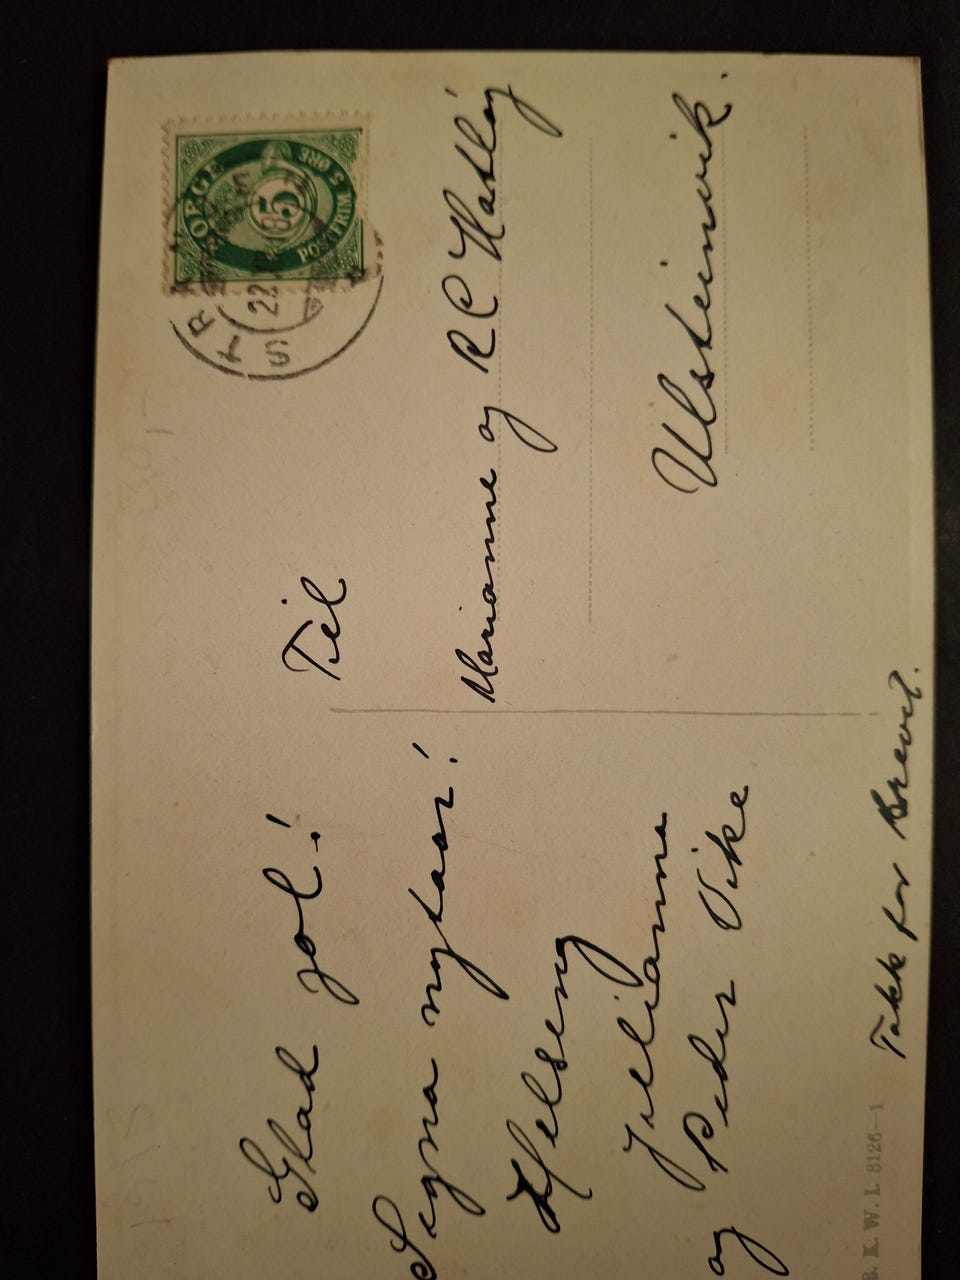 Glad jol!
Signa nytaar!
Helsing
Julianna
og Peder Vike
Takk for Brevet.
B. K. W. I. 3126—1
NORGE
5
POSTFRIM 5 ØRE
22
Til
Marianne og R C Hatløy
Ulsteinvik.